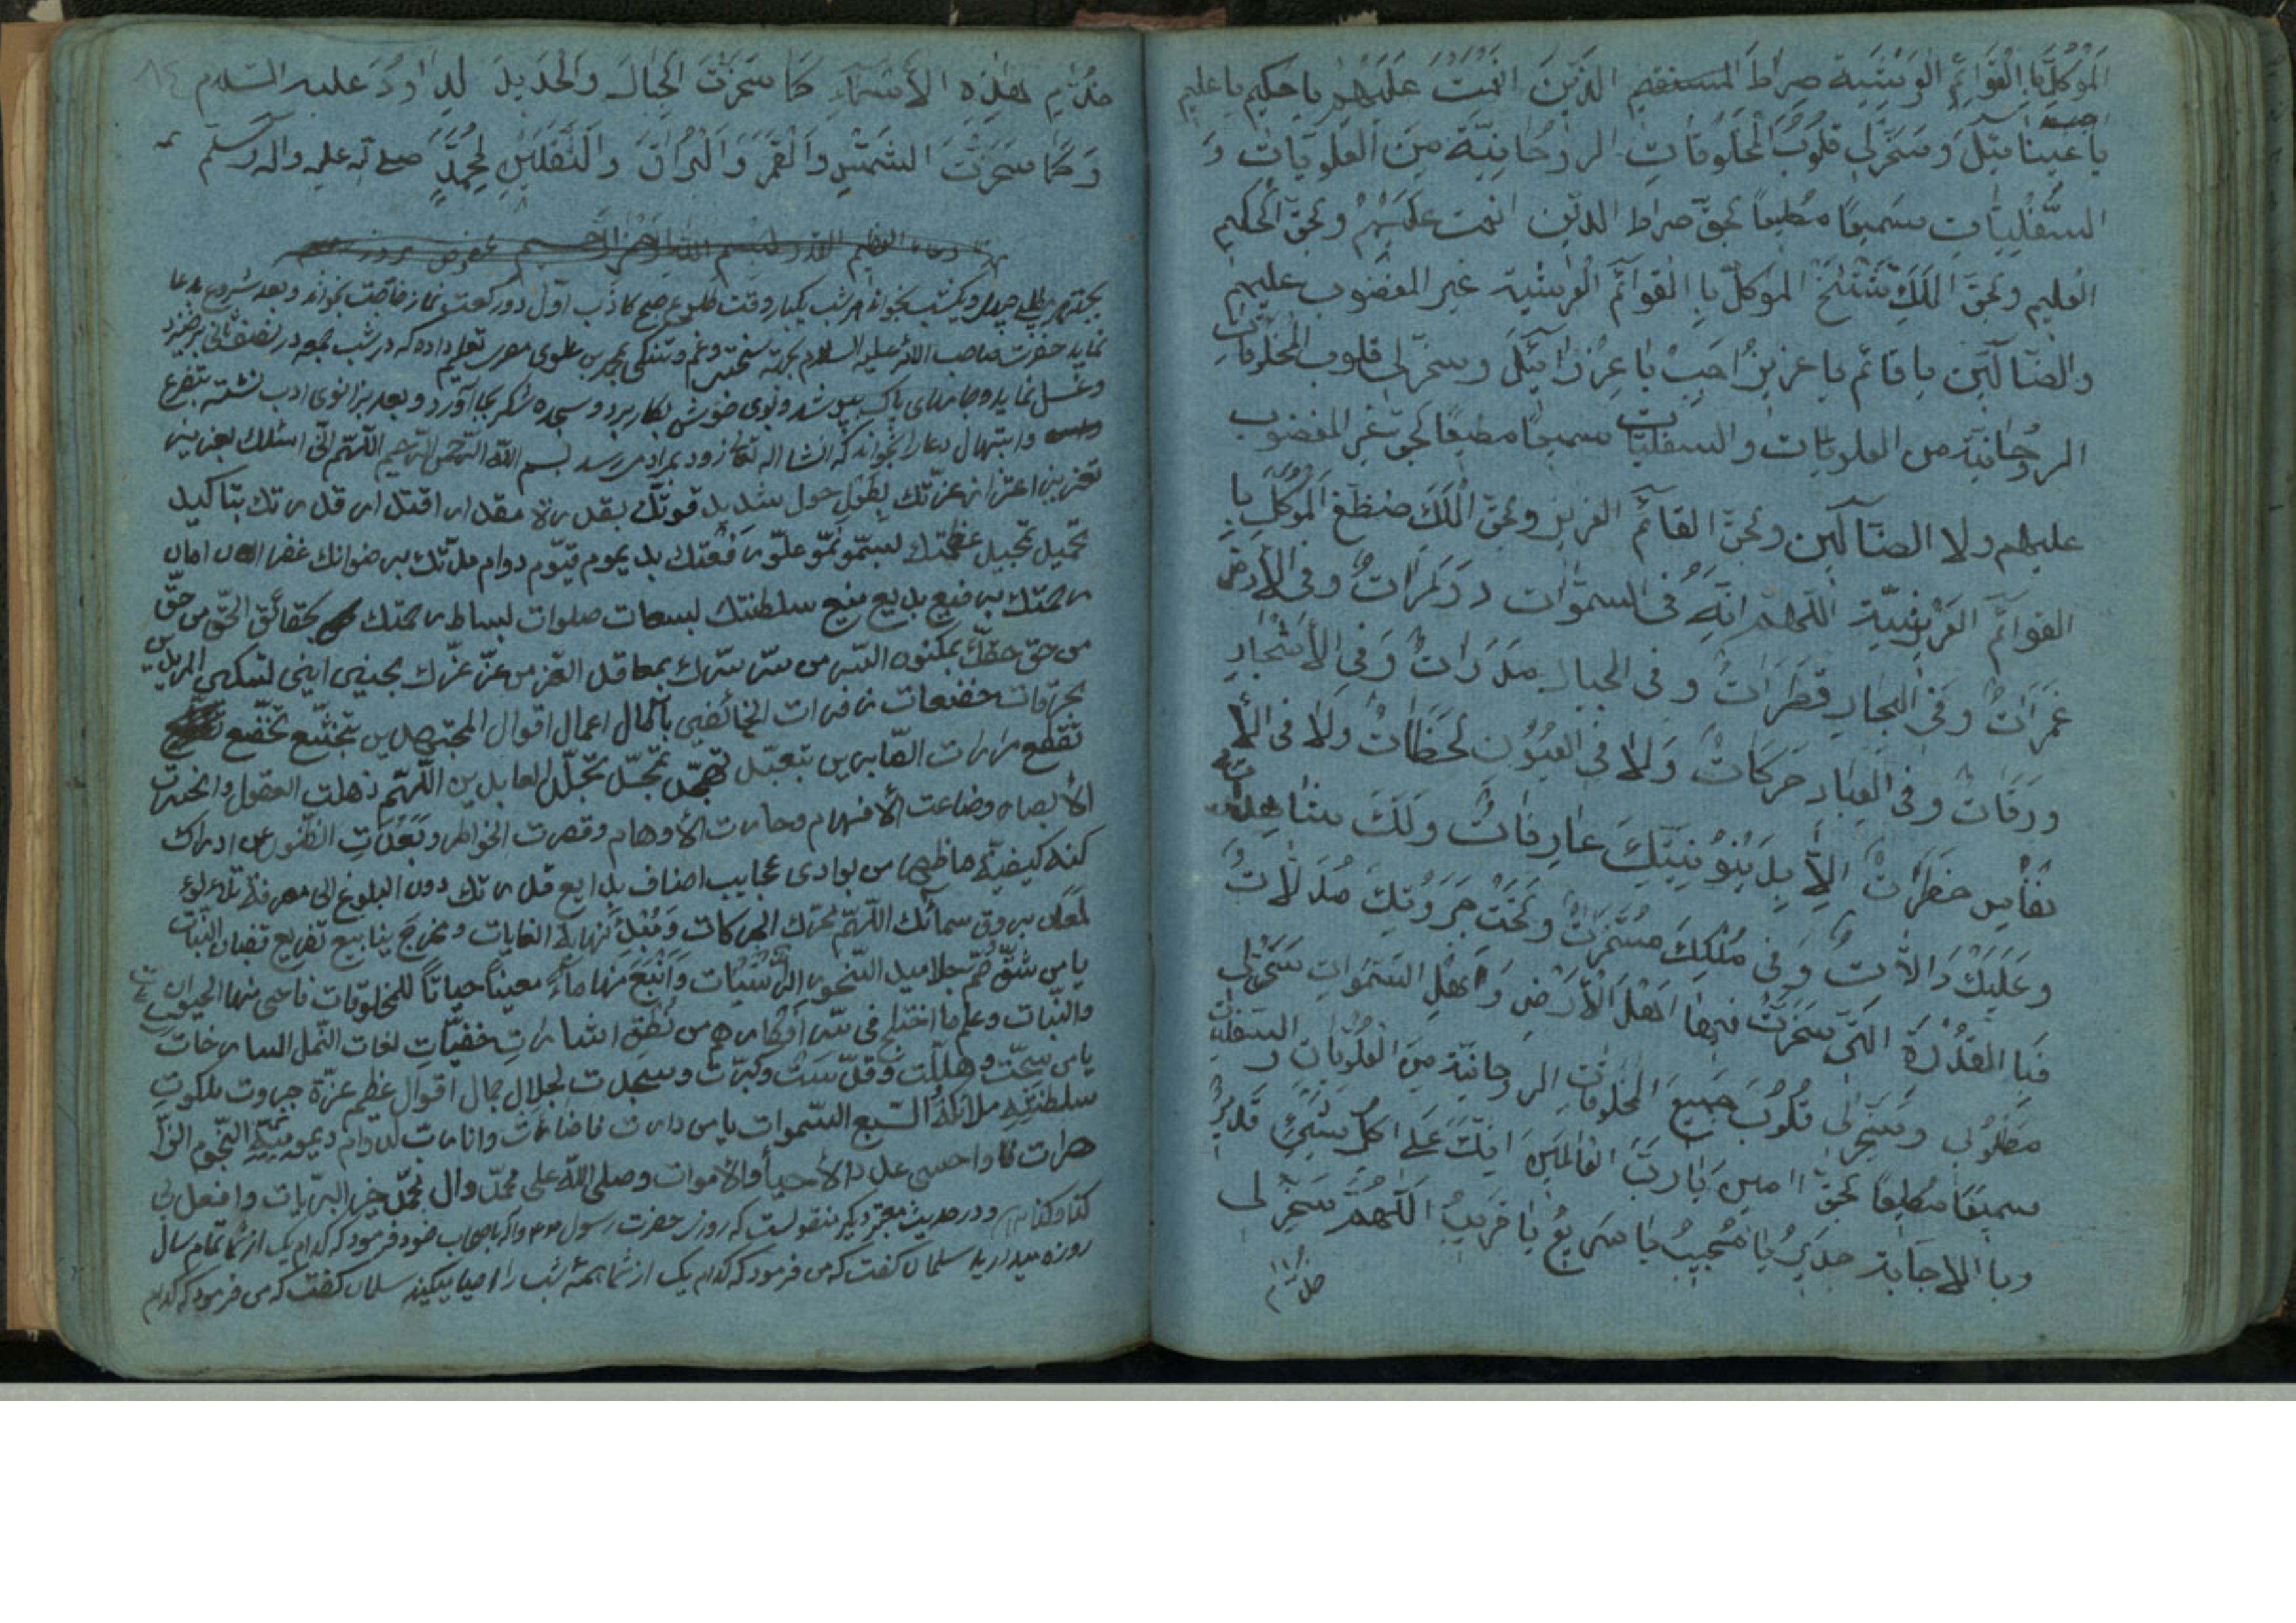 الموكل با القوائم العرشية صراط المستقيم الذين انعمت عليهم يا حكيم يا عليم
اجب يا عينائيل وسخر لي قلوب المخلوقات الروحانية من العلويات و
السفليات سميعا مطيعا بحق صراط الذين انعمت عليهم وبحق الحكيم
العليم وبحق الملك المؤكل با القوائم العرشية غير المغضوب عليهم
والضالين يا قائم يا عزيز اجب يا عزرائيل وسخر لي قلوب المخلوقات
الروحانية من العلويات والسفليات سميعا مطيعا بحق غير المغضوب
عليهم ولا الضالين وبحق القائم العزيز وبحق الملك الموكل با
القوائم العرشية اللهم انه في السموات وفي الارض
غمرات وفي البحار قطرات وفي الجبال مدرات وفي الأشجار
ورقات وفي العباد حركات ولا في العيون لحظات ولا في الأ
نفاس خطرات الا عارفات ولك مشاهدات
وعليك دالات وفي ملكك وتحت جبروتك مذللات
فبا القدرة التي سخرت فيها اهل الارض واهل السموات سخر لي
مطلوبي وسخر لي قلوب جميع المخلوقات الروحانية من العلويات والسفليات
سميعا مطيعا بحق امين يا رب العالمين انك على كل شيئ قدير
وبا الاجابة جدير يا مجيب يا سريع يا قريب اللهم سخر لي
هذه الأسماء كما سخرت الجبال والحديد لداود عليه السلام
وكما سخرت الشمس والقمر والبراق والثقلين لمحمد صلى الله عليه واله وسلم
بخواند هر شب يكبار وقت طلوع صبح كاذب اول دو ركعت نماز حاجت بخواند وبعد شروع بدعا
نمايد حضرت صاحب الأمر عليه السلام بجهة سختى وغم وتنكى محمد بن علوى مصرى تعليم داده كه در شب جمعه در نصف ثانى برخيزد
وغسل نمايد وجامهاى پاك بپوشد وبوى خوش بكار برد وسجده شكر بجا آورد وبعد بزانوى ادب نشسته بتضرع
وابتهال دعا را بخواند كه انشا اله تعا زود بمراد ميرسد بسم الله الرحمن الرحيم اللهم انى اسئلك بعزيز
تعزيز اعتزاز عزتك بطول حول شديد قوتك بقدرة مقدار اقتدار قدرتك بتاكيد
تحميد تمجيد عظمتك بسمو نمو علو رفعتك بديموم قيوم دوام مدتك برضوانك غفران امان
رحمتك برفيع بديع منيع سلطنتك بسعات صلوات بساط رحمتك بحقائق الحق من حق
من حق حقك بمكنون السر من سر سرك بمعاقد العز من عز عزك بحنين انين تسكين المريدين
بحرقات خضعات زفرات الخائفين بآمال اعمال اقوال المجتهدين بتخشع تخضع
تقطع مرارات الصابرين بتعبد تهجد تمجد تجلد العابدين اللهم ذهلت العقول وانحسرت
الأبصار وضاعت الأفهام وحارت الأوهام وقصرت الخواطر وبعدت الظنون عن ادراك
كنه كيفية ما ظهر من بوادى عجايب اصناف بدايع قدرتك دون البلوغ الى معرفة تلاءلؤ
لمعان بروق سمائك اللهم محرك الحركات ومبدئ نهاية الغايات ومخرج ينابيع تفريع قضبان النبات
يا من شق صم جلاميد الصخور الراسيات وانبع منها ماء معينا حياتا للمخلوقات فاحيى منها الحيوان
والنبات وعلم ما اختلج في سر افكارهم من نطق اشارات خفيات لغات النمل السارحات
يا من سبحت وهللت وقدست وكبرت وسجدت لجلال جمال اقوال عظيم عزة جبروت ملكوت
سلطنته ملائكة السبع السموات يا من دارت فاضائت وانارت لدوام ديموميته النجوم الزا
هرات واحصى عدد الأحيا والاموات وصلى الله على محمد وال محمد خير البريات وافعل بى
كذا وكذا ودر حديث معتبر ديكر منقولست كه روزى حضرت رسول ص واله باصحاب خود فرمود كه كدام يك از شما تمام سال
روزه ميداريد سلمان كفت كه من فرمود كه كدام يك از شما همه شب را احيا ميكنيد سلمان كفت كه من فرمود كه كدام